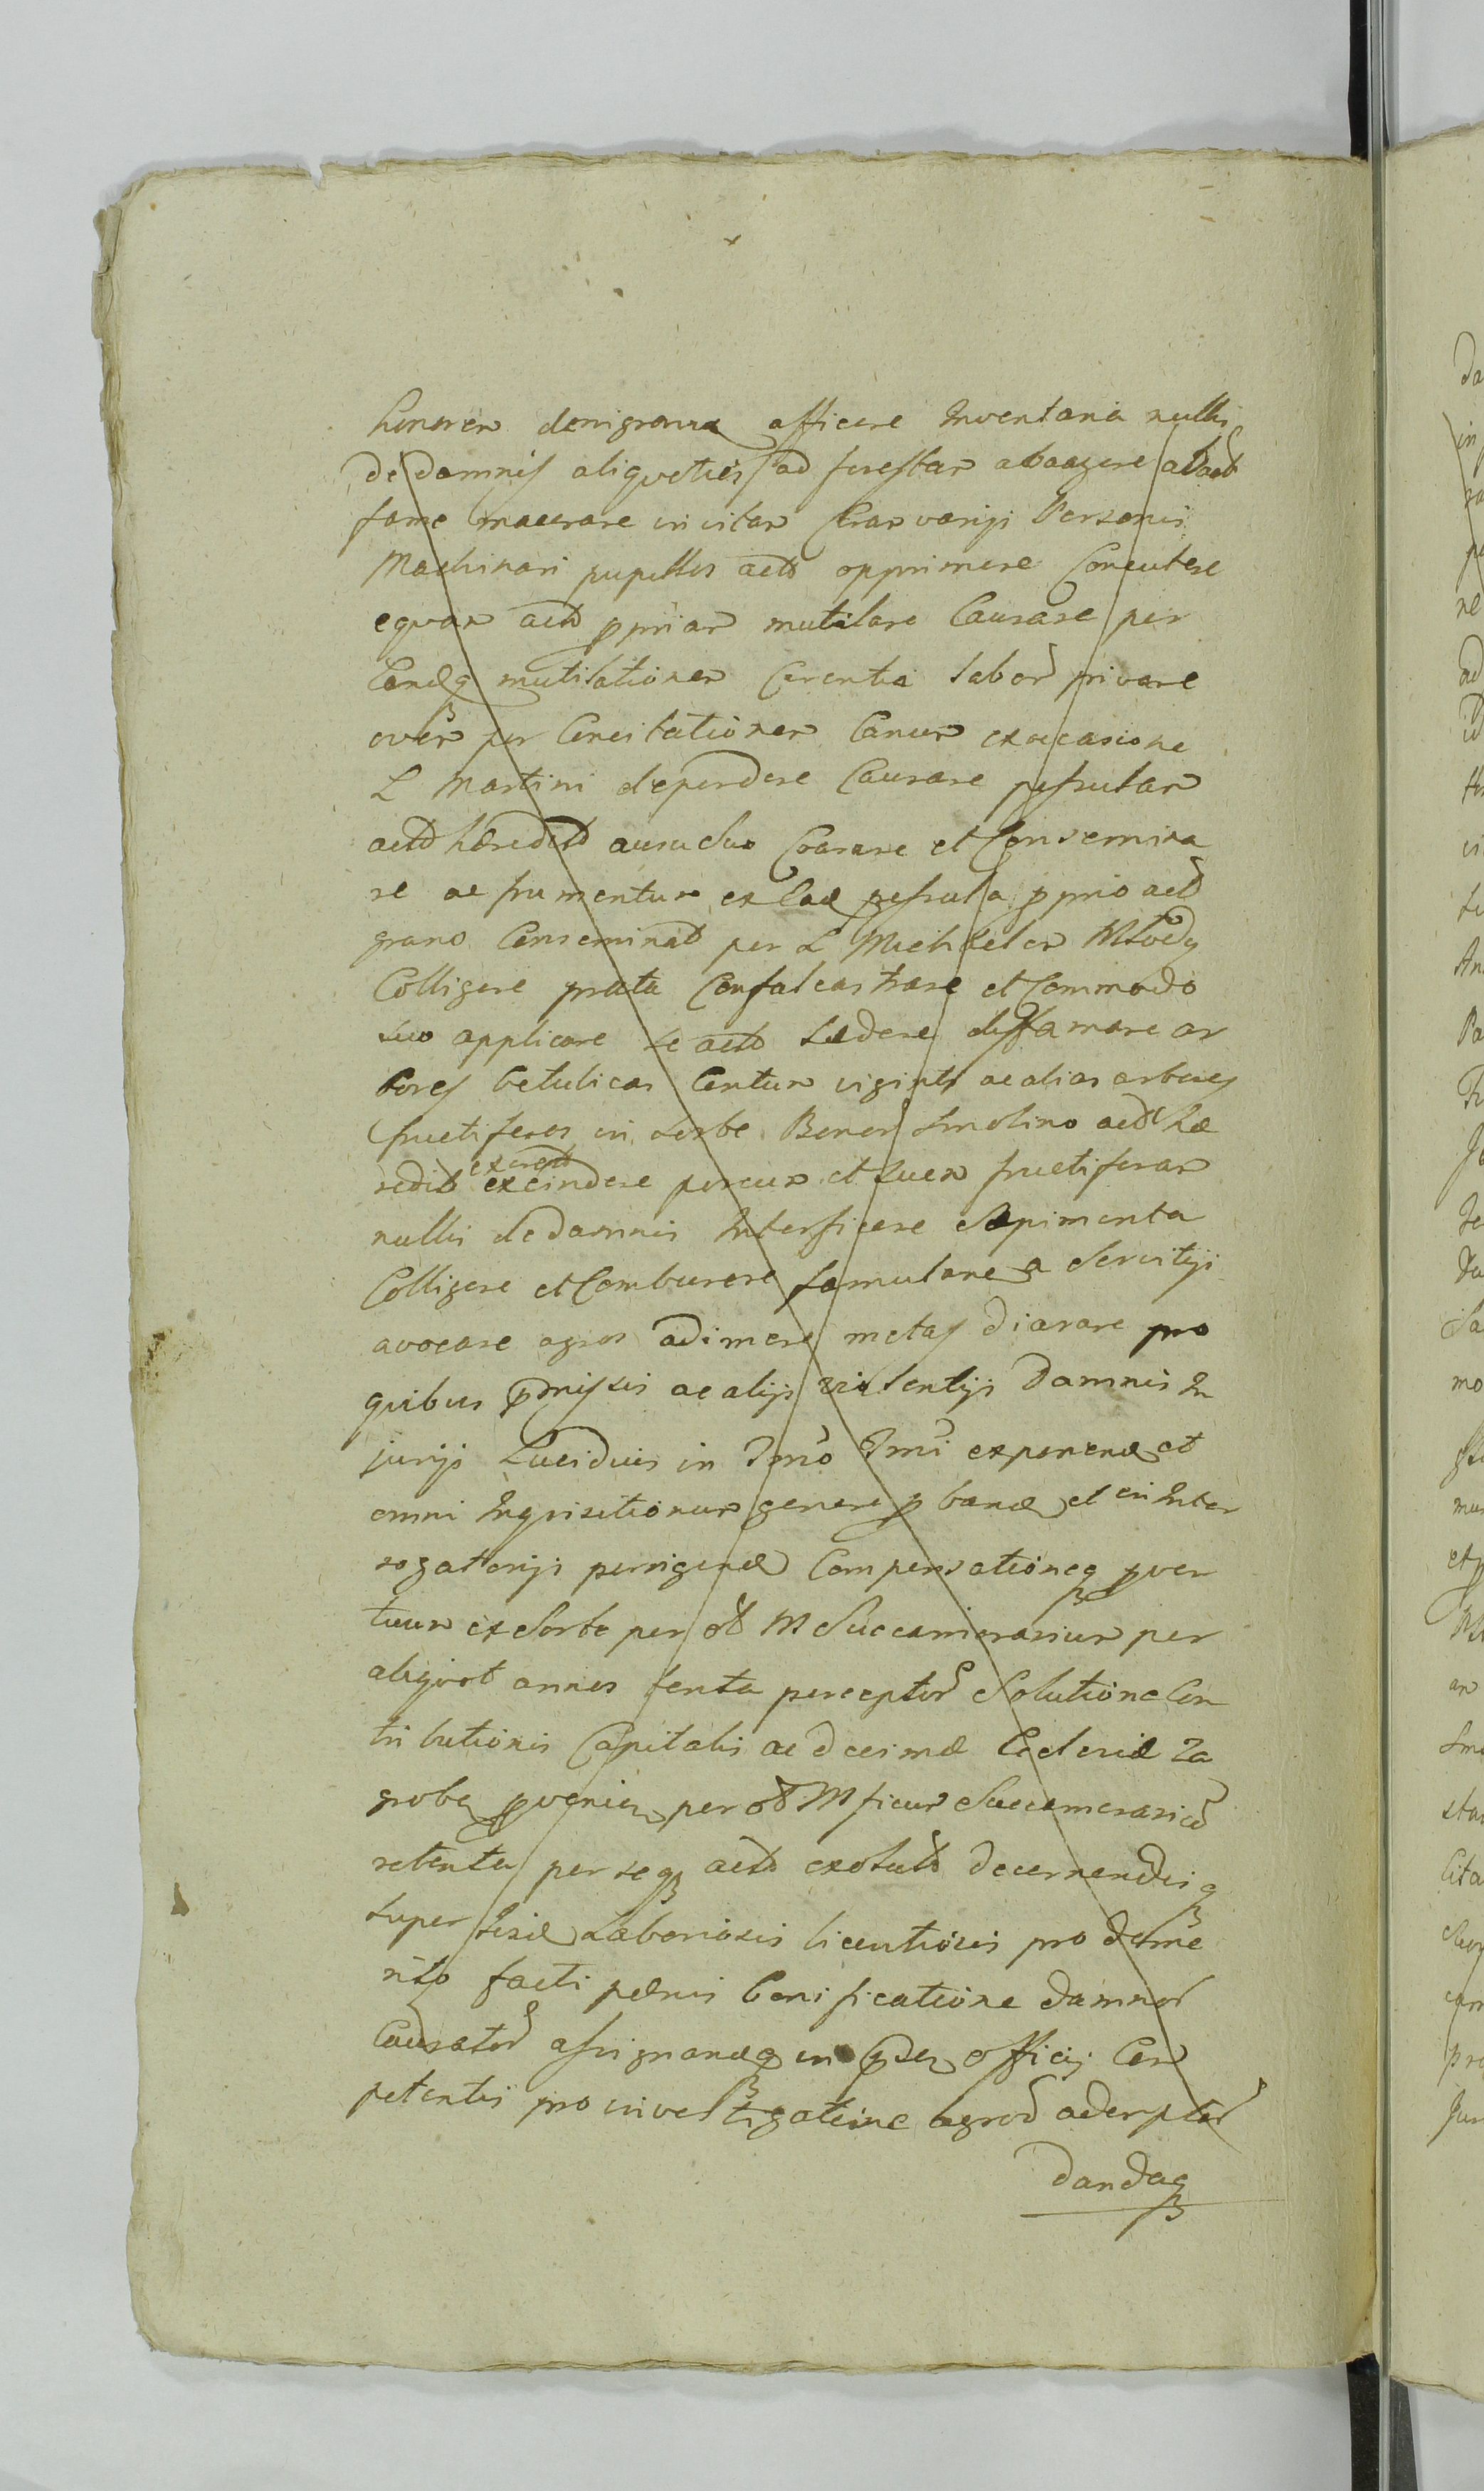 honorem denigrania afficere Inventaria nullis
de damnis aliquoties ad forestam abaagere abact
fame macerare in vitam Coram varijs Personis
Machinari pupillos actd opprimere Concutere
equam actd ppriam mutilare Causare per
Eandq mutilationem Carentia labor privare
oves per Concitationem Canum ex occasione
L Martini deperdere Causare pefsulam
actd hæredit ausu suo Coarare et Consemina
re ac frumentum ex Ead pefsula pprio actd
grano Conseminatd per L Michaelem Młody
Colligere prata Confalcastrare et Commodo
suo applicare se actd Lædere diffamare ar
bores betulicas Centum viginti ac alias arbores
fructiferas in sorte Bonor Smolino actd hæ
redit excrestd excindere porcum et suem fructiferam
nullis de damnis Interficere Sæpimenta
Colligere et Comburere famulam a Servitijs
avocare agros adimere metas diarare pro
quibus pmissis ac alijs violentijs Damnis In
jurijs Lucidius in Tmo Tmi exponend et
omni Inquisitionum genere pband et in Inter
rogatorijs perrigend Compensationeq pven
tuum ex Sorte per od M Succamerarium per
aliquot annos tenta perceptor Solutione Con
tributionis Capitalis ac decimæ Ecclesiæ Za
grobæ pvenien per od Mficum Succamerariu
retenta per seq actd exolutd decernendisq
super hisce Laboriosis licentiosis pro deme
rito facti pœnis bonificatione damnor
Causator assignandq in pden officij Com
petentis pro investigatione agror ademptor
Dandaq